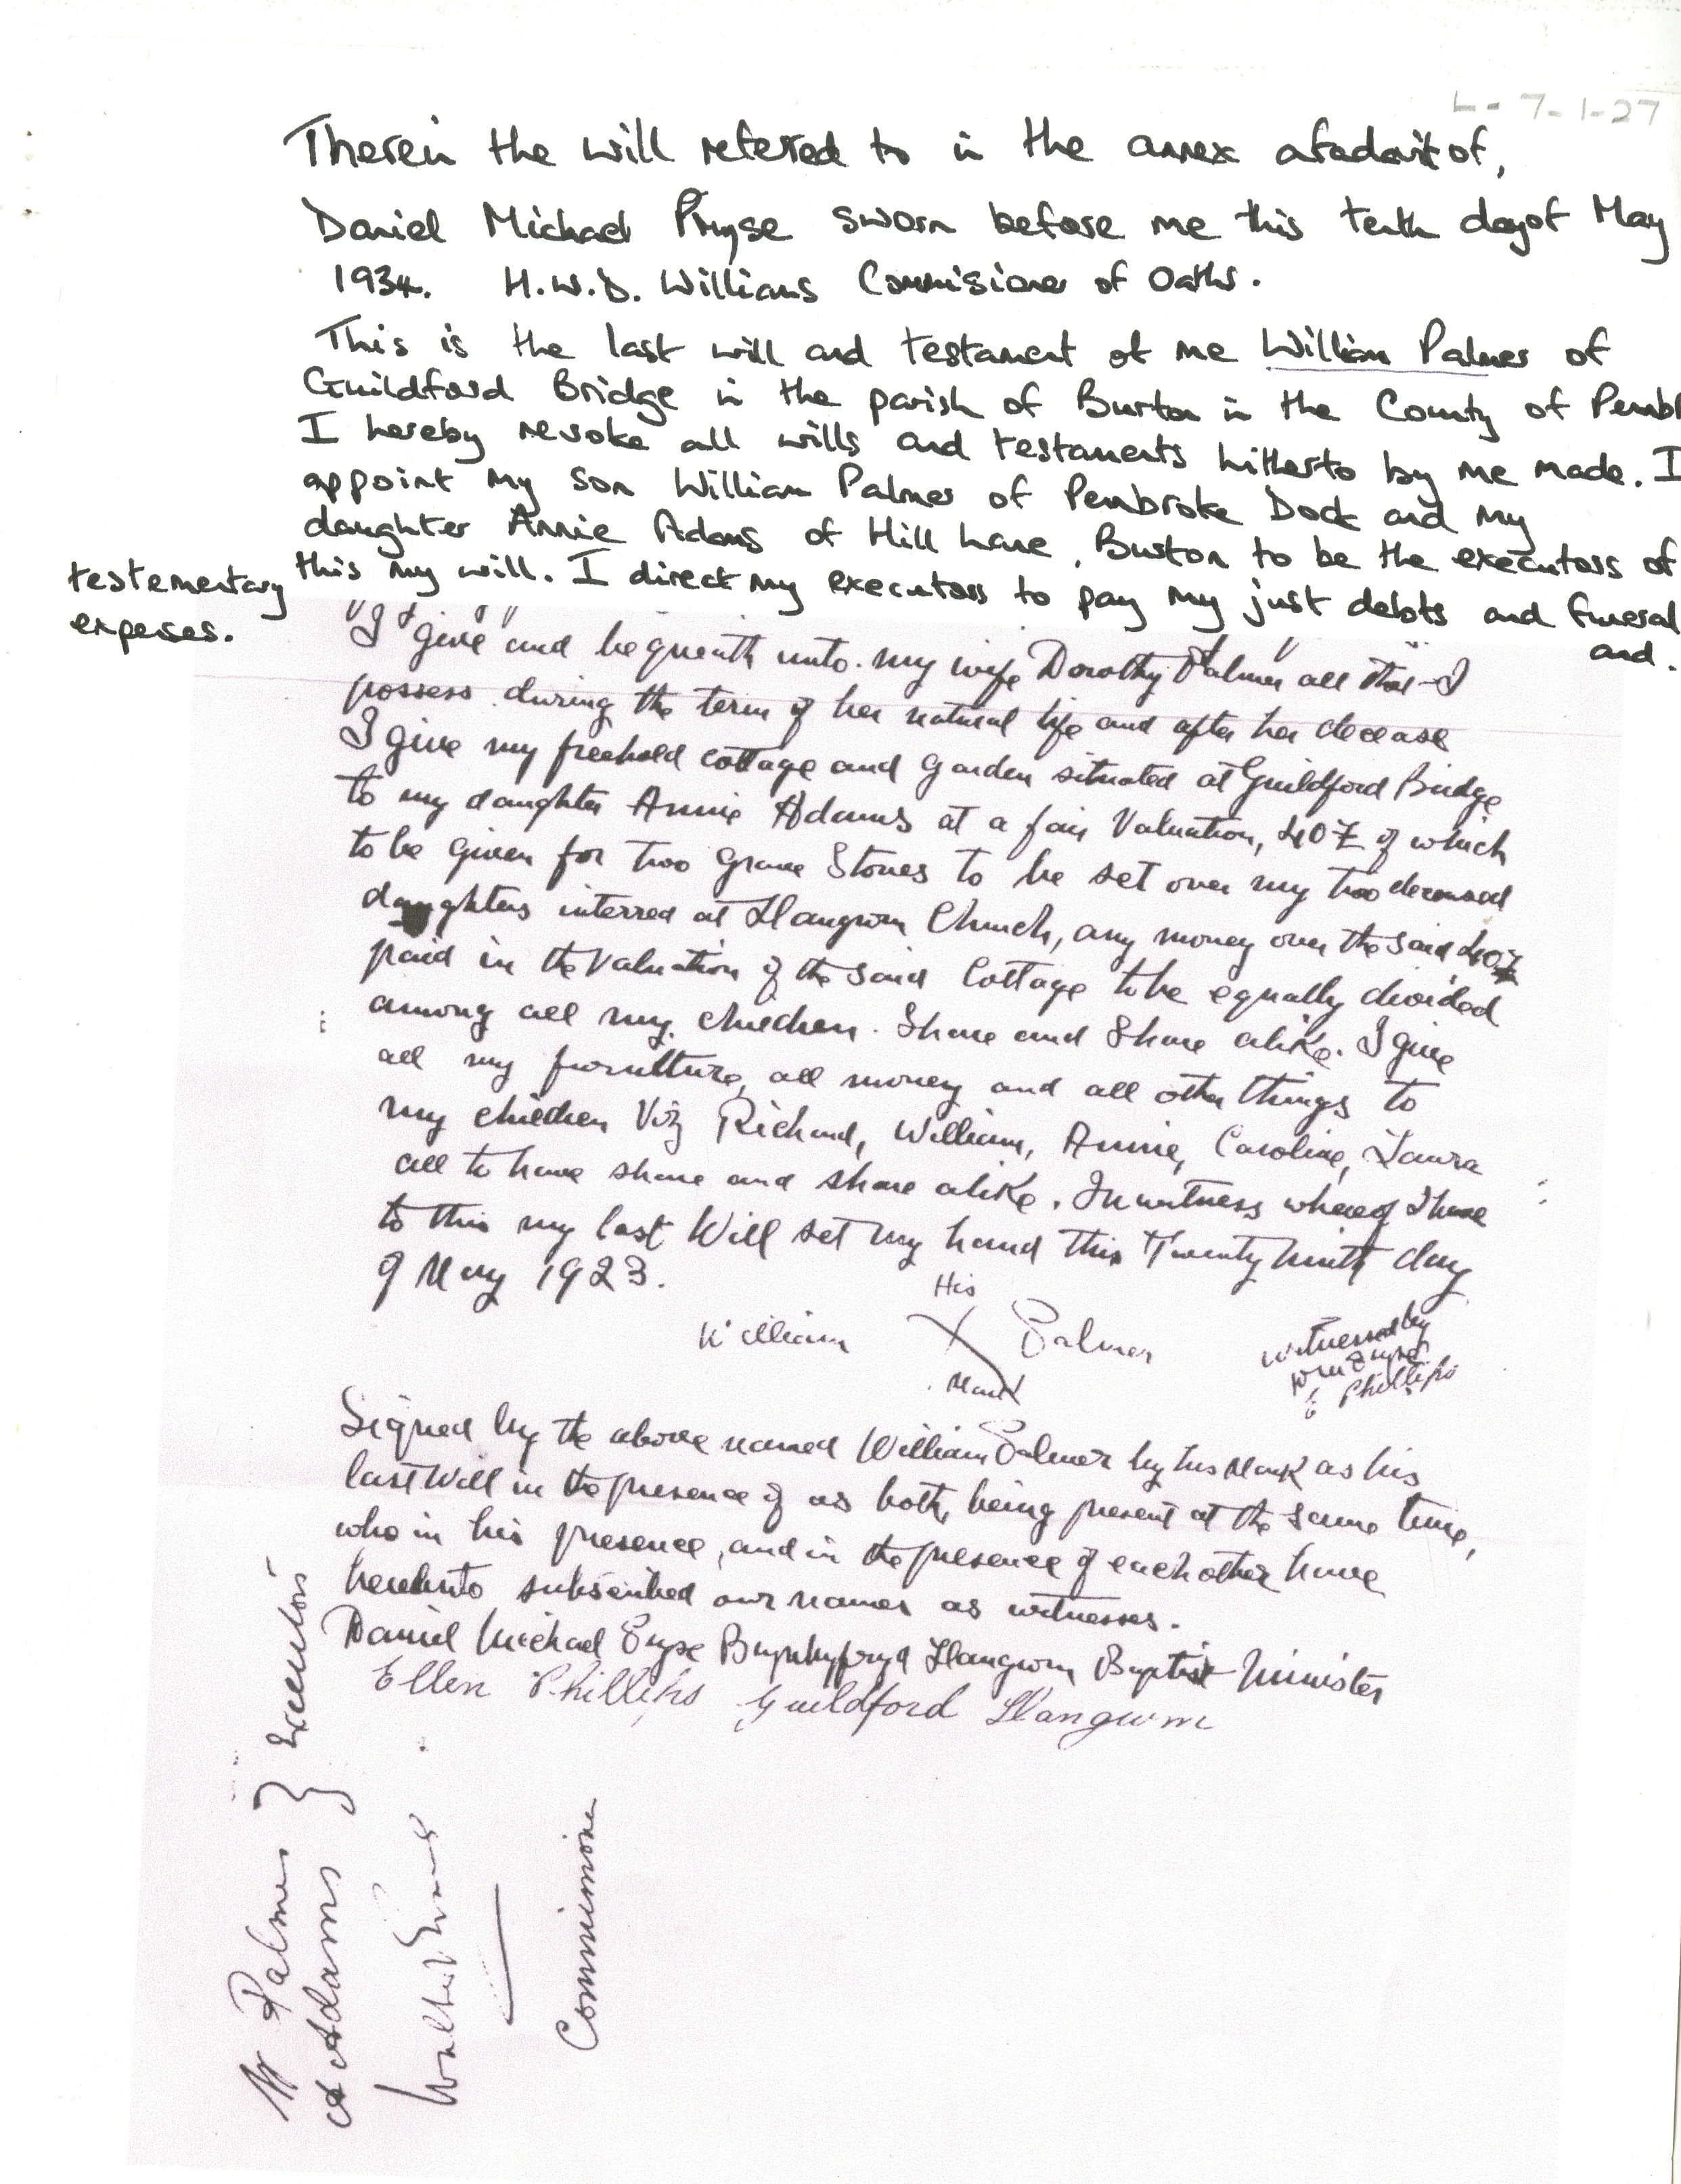 L-7-1-27
Therein the will refered to in the annex afadavit of,
Daniel Michael Pryse sworn before me this tenth day of May
1934. H.W.D. Williams Commisioner of Oaths.
This is the last will and testament of me William Palmer of
Guildford Bridge in the parish of Burton in the County of Pemb
I hereby revoke all wills and testaments hitherto by me made. I
appoint my son William Palmer of Pembroke Dock and my
daughter Annie Adams of Hill Lane, Burton to be the executors of
this my will. I direct my executors to pay my just debts and funeral
and.
testementary
expenses.
I give and bequeath unto my wife Dorothy Palmer all that I
possess during the term of her natural life and after her decease
I give my freehold cottage and Garden situated at Guildford Bridge
to my daughter Annie Adams at a fair Valuation, 40£ of which
to be given for two Grave Stones to be set over my two deceased
daughters interred at Llangwm Church, any money over the said 40£
paid in the Valuation of the said Cottage to be equally divided
among all my children. Share and Share alike. I give
all my furniture, all money and all other things to
my children Viz Richard, William, Annie, Caroline, Laura
all to have share and share alike. In witness whereof I have
to this my last Will set my hand this Twenty ninth day
of May 1923.
His
William X Palmer
Mark
Witnessed by
E Phillips
Signed by the above named William Palmer by his Mark as his
last Will in the presence of us both, being present at the same time,
who in his presence, and in the presence of each other have
hereunto subscribed our names as witnesses.
Daniel Michael Pryse Brynhyfryd Llangwm Baptist Minister
Ellen Phillips Guildford Llangwm
W Palmer } Executors
A Adams
Commissioner